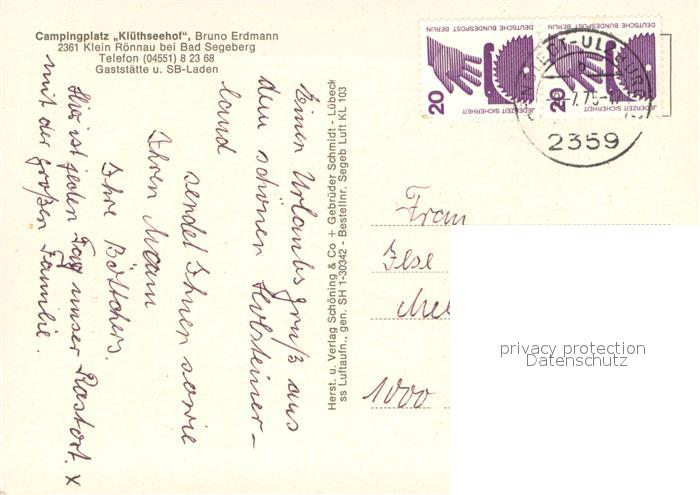 Campingplatz „Klüthseehof", Bruno Erdmann
2361 Klein Rönnau bei Bad Segeberg
Telefon (04551) 8 23 68
Gaststätte u. SB-Laden
Einen Urlaubsgruß aus
dem schönen Holsteiner-
land
sendet Ihnen sowie
Ihrem Mann
Ihre Böttchers.
Hier ist jeden Tag unser Rastort. x
mit der großen Familie.
Herst. u. Verlag Schöning & Co + Gebrüder Schmidt - Lübeck
ss Luftaufn., gen. SH 1-30342 - Bestellnr. Segeb Luft KL 103
DEUTSCHE BUNDESPOST BERLIN
20
JEDERZEIT SICHERHEIT
DEUTSCHE BUNDESPOST BERLIN
20
JEDERZEIT SICHERHEIT
2359
Frau
Ilse
1000
privacy protection
Datenschutz